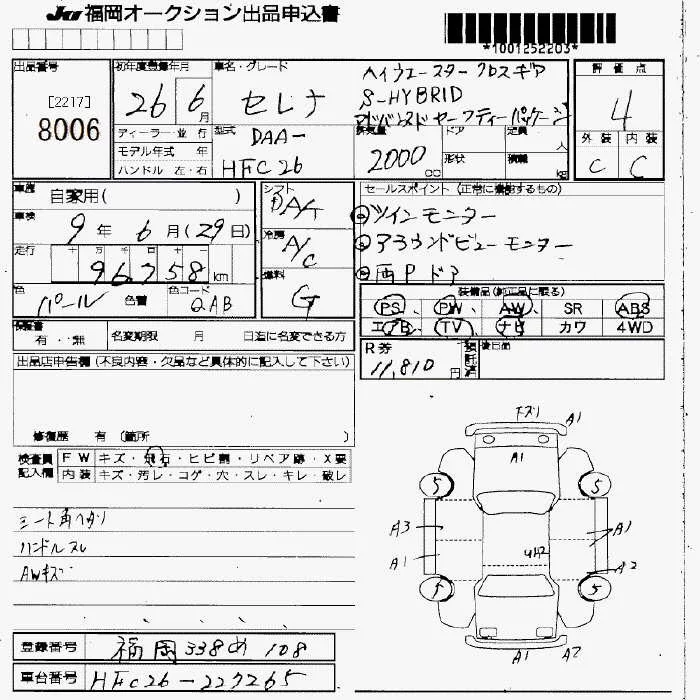 JU 福岡オークション出品申込書
*1001252203*
出品番号
[2217]
8006
初年度登録年月
26年 6月
車名・グレード
セレナ
ハイウェースター クロスギア
S-HYBRID
アドバンスドセーフティーパッケージ
評価点
4
外装 内装
C C
ディーラー 並行
モデル年式 年
ハンドル 左・右
型式
DAA-
HFC26
排気量
2000 cc
ドア
形状
定員
人
積載
kg
車歴
自家用( )
車検
9年 6月(29日)
走行
十 万 千 百 十
96758km
色
パール
色替
色コード
QAB
シフト
DAT
冷房
A/C
燃料
G
セールスポイント (正常に機能するもの)
ツインモニター
アラウンドビューモニター
両Pドア
装備品(純正品に限る)
PS、 PW、 AW、 SR ABS
エアB、 TV、 ナビ カワ 4WD
保証書
有・無
名変期限 月 日迄に名変できる方
R券
11,810円
後日品
出品店申告欄(不良内容・欠品など具体的に記入して下さい)
修復歴 有(箇所 )
検査員
記入欄
FW キズ・飛石・ヒビ割・リペア跡・X要
内装 キズ・汚レ・コゲ・穴・スレ・キレ・破レ
シート角ヘタリ
ハンドルスレ
AWキズ
下ズリ A1
A1
5 5
A3 A1
A1 A2
5 5
A1 A2
登録番号
福岡 338 め 108
車台番号
HFC26-227265